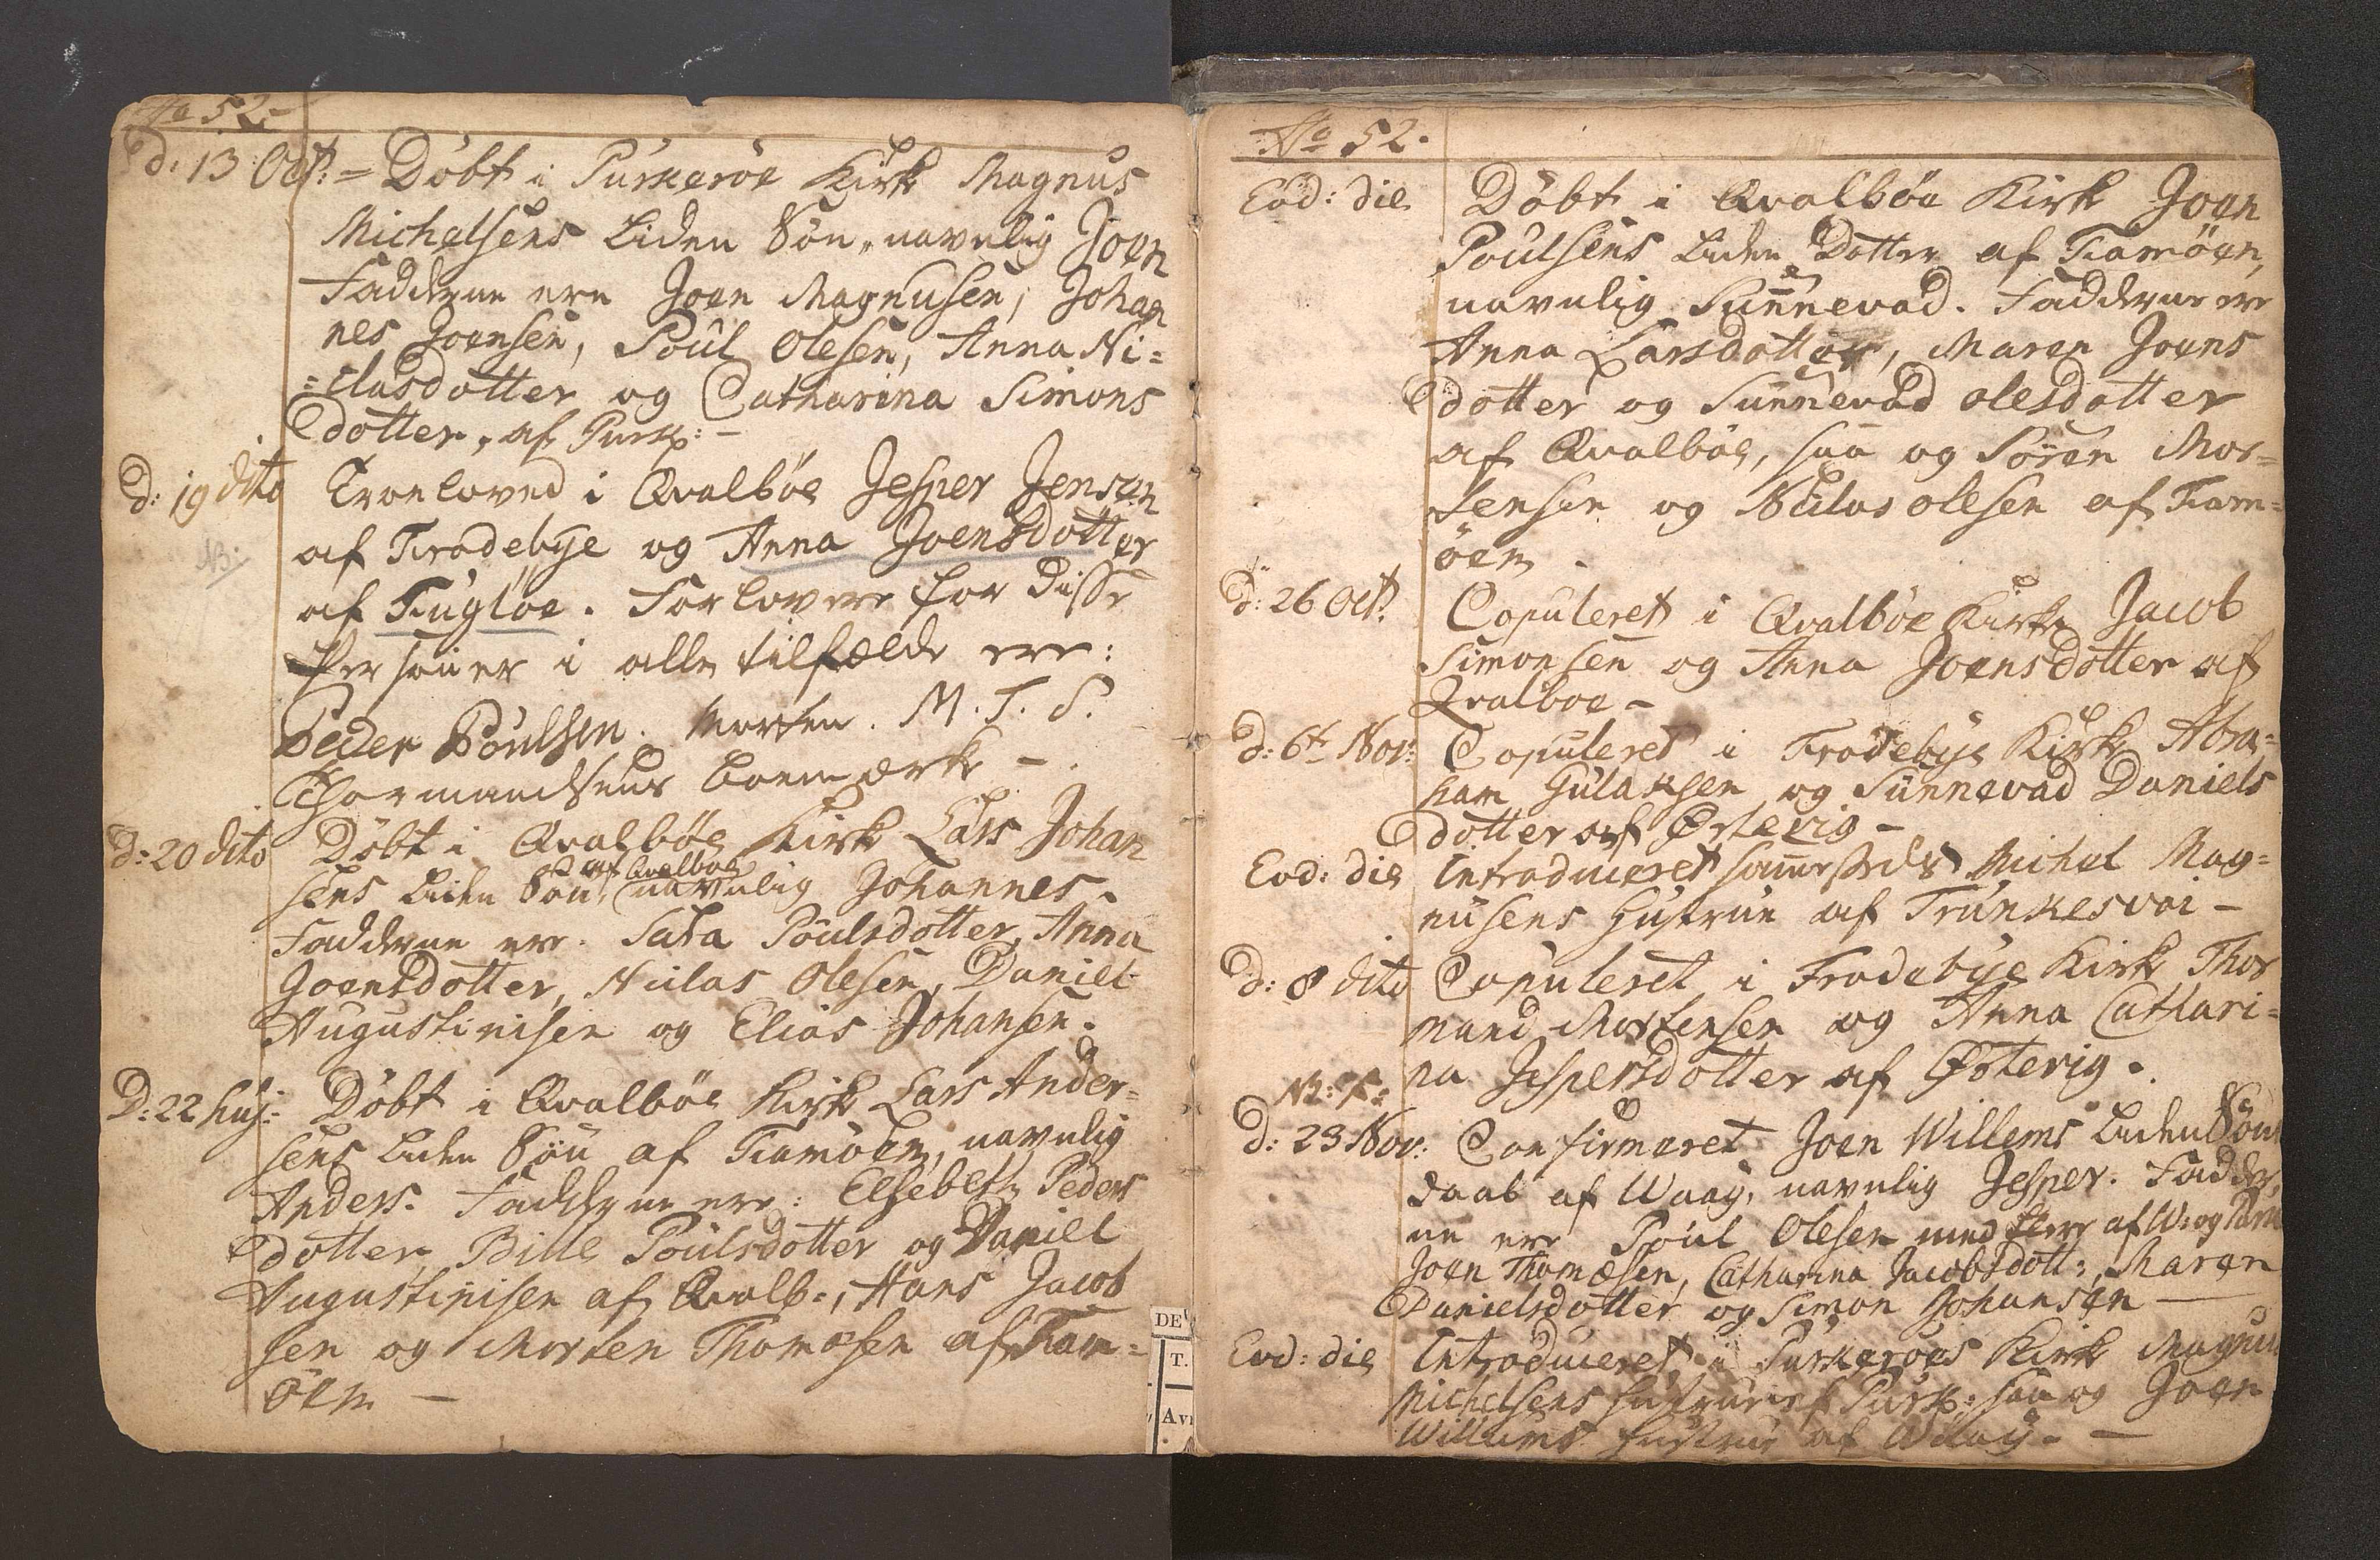 Ao 52.
d: 13 Oct: = Döbt i Purkeröe Kirke Magnus
Michelsens liden Sön, navnlig Joen
Fadderne ere Joen Magnusen, Johan
nes Joensen, Poul Olesen, Anna Ni=
=clasdotter og Catharina Simons
dotter, af Purk: -
d: 19 dito Troeloved i Qvalböe Jesper Jensen
af Frodebÿe og Anna Joensdotter
NB:
af Fugloe. Forlovere for disse
Persohner i alle tilfælde ere:
Peder Poulsen. Morten. M. T. S.
Thormandsens boemærke -
d: 20 dito Döbt i Qvalböe Kirke Lars Johan
af Qvalboe
sens liden Sön, navnlig Johannes.
Fadderne ere. Sata Poulsdotter, Anna
Joensdotter, Niclas Olesen, Daniel
Augustinisen og Elias Johansen.
D: 22 huj: Döbt i Qvalböe Kirke Lars Ander=
sens liden Sön af Famöen, navnlig
Anders. Fadderne ere: Elsebeth Peders
dotter, Bille Poulsdotter og Daniel
Augustinisen af Qvalb:, Hans Jacob
sen og Morten Thomæsen af Fam=
öen -
Ao 52.
Eod: die Döbt i Qvalböe Kirke Joen
Poulsens liden Dotter af Famöen,
navnlig Sunnevad. Fadderne ere
Anna Larsdotter, Maren Joens
dotter og Sunnevad olesdotter
af Qvalböe, saa og Sören Mor=
tensen og Niclas olesen af Fam=
öen.
d: 26 Oct: Copuleret i Qvalböe Kirke Jacob
Simonsen og Anna Joensdotter af
Qvalboe -
d: 6t Nov: Copuleret i Frodebÿe Kirke Abra=
ham Gulaksen og Sunnevad Daniels
dotter af Örterig -
Eod: die Introduceret sammesteds Michel Mag=
nusens Hustrue af Trunkesvai -
d: 8 dito Copuleret i Frodebÿe Kirke Thor
mand Mortensen og Anna Cathari=
na Jespersdotter af Österig.
NB:
d: 23 Nov: Confirmeret Joen Willems liden Söns
daab af Waag, navnlig Jesper. Fadder,
ne ere Poul Olesen med fleere af W: og
Joen Thomæsen, Catharina Jacobsdott:, Maren
Danielsdotter og Simon Johansen
Eod: die Introduceret i Purkeröes Kirke Magnus
Michelsens hustrue af Purk: saa og Joen
Willums hustrue af Waag. -
DE
T.
Av